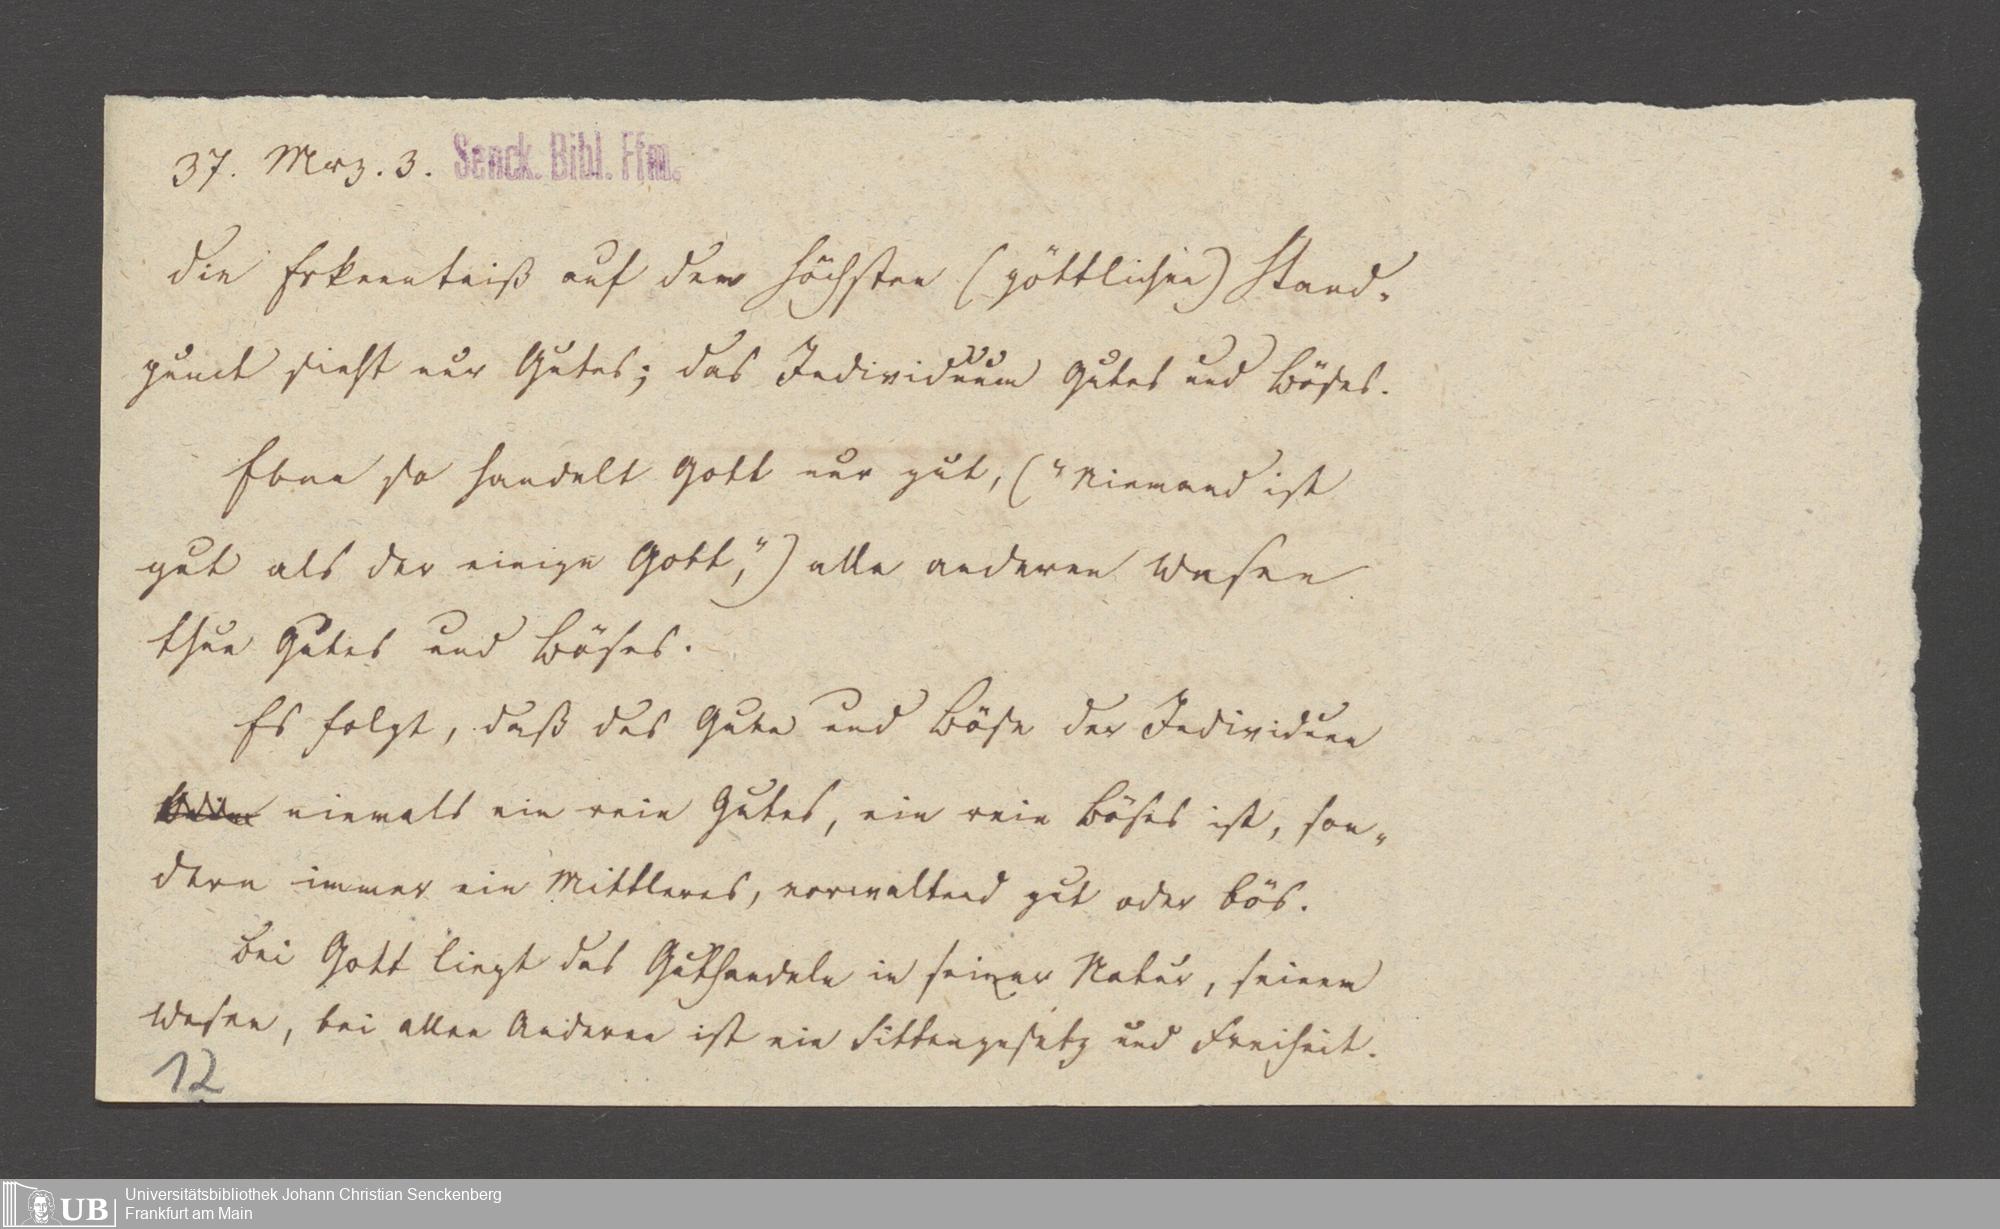 37. Mrz. 3. Senck. Bibl. Ffm.
Die Erkenntniß auf dem höchsten (göttlichen) Stand-
punct sieht nur Gutes; das Individuum Gutes und Böses.
Eben so handelt Gott nur gut, („Niemand ist
gut als der einige Gott,“) alle anderen Wesen
thun Gutes und Böses.
Es folgt, daß das Gute und Böse der Individuen
niemals ein rein Gutes, ein rein Böses ist, son-
dern immer ein Mittleres, vorwaltend gut oder bös.
Bei Gott liegt das Guthandeln in seiner Natur, seinem
Wesen, bei allen Anderen ist ein Sittengesetz und Freiheit.
12
UB Universitätsbibliothek Johann Christian Senckenberg
Frankfurt am Main